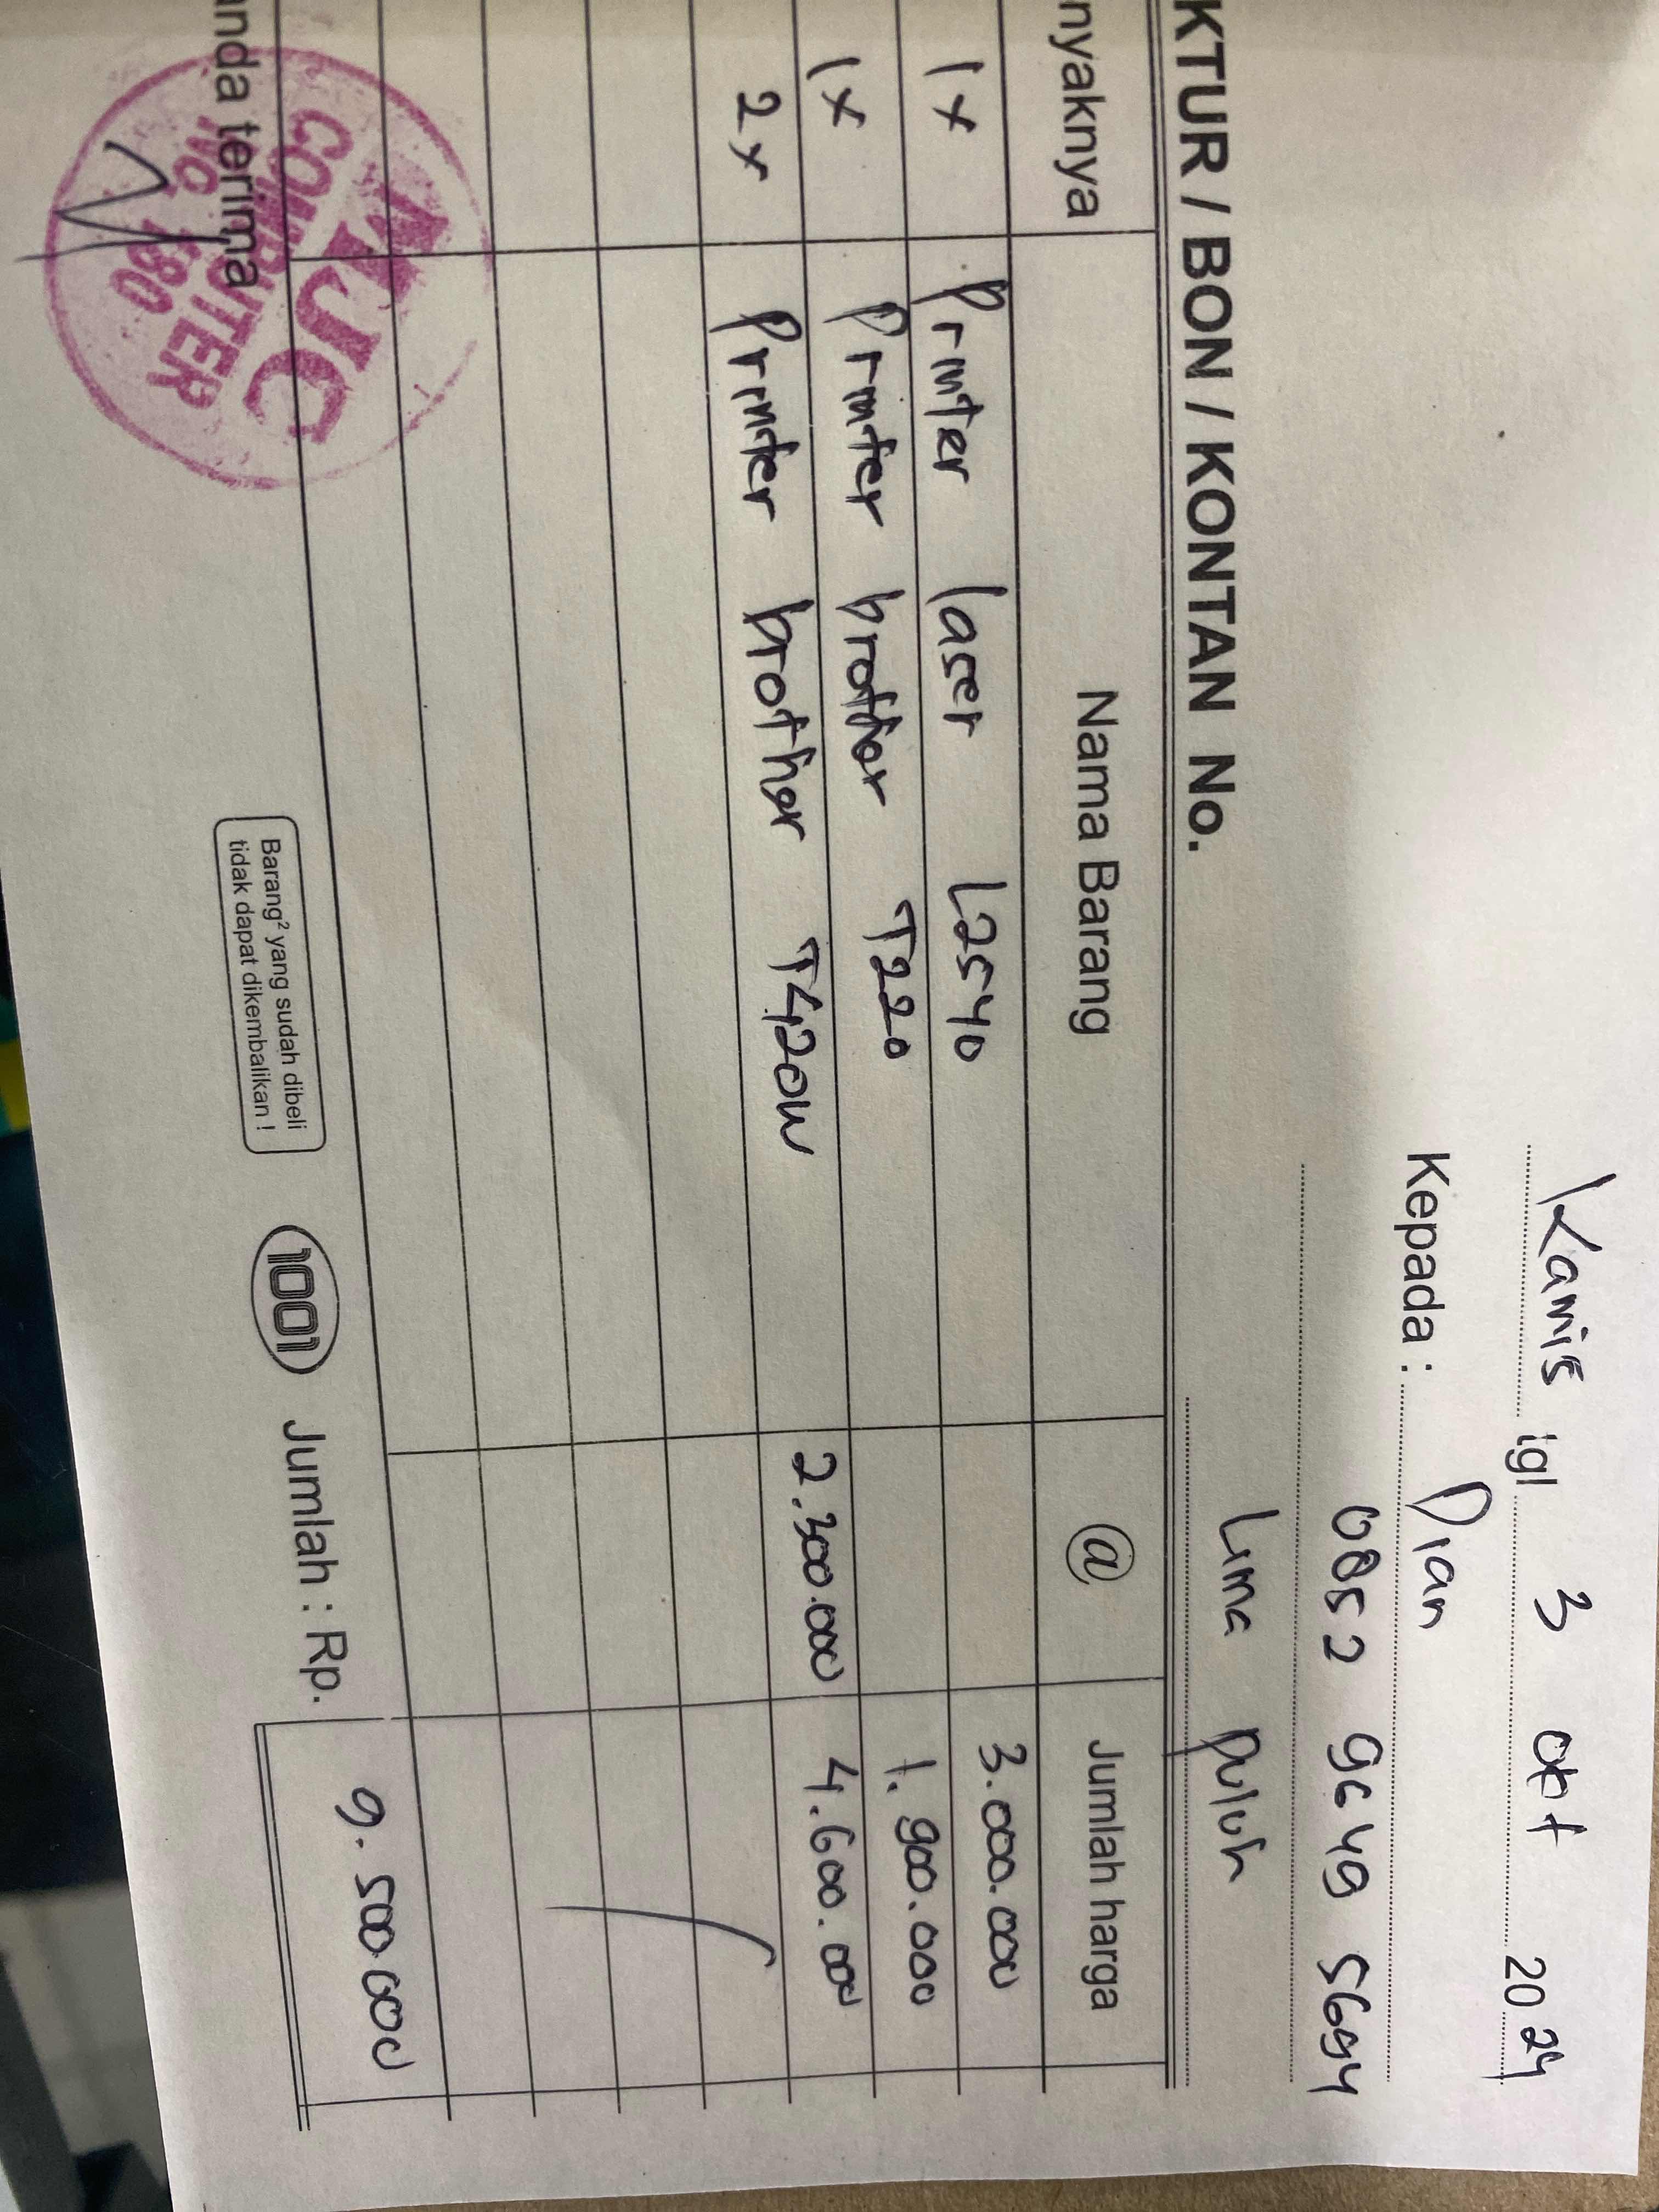 Kamis tgl 3 okt 2024
Kepada : Dian
0852 9649 5694
Lima puluh
KTUR / BON / KONTAN No.
nyaknya Nama Barang @ Jumlah harga
1x Printer laser L2540 3.000.000
1x Printer brother T220 1.900.000
2x Printer brother T420W 2.300.000 4.600.000
anda terima
MJC
COMPUTER
Barang² yang sudah dibeli
tidak dapat dikembalikan !
1001
Jumlah : Rp. 9.500.000